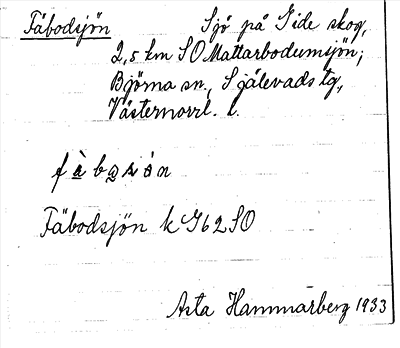 Fäbodsjön Sjö på Gide skog,
2,5 km SO Mattarbodumsjön;
Björna sn., Själevads tg,
Västernorrl. l.
Fäbodsjön k G62SO
Asta Hammarberg 1933